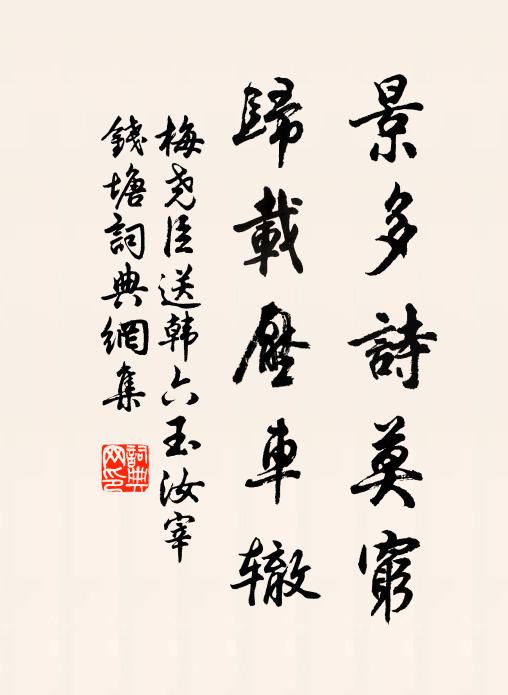 景多詩莫窮
歸載壓車辙
梅尧臣送韩六玉汝宰
錢塘詞典網集
詞典网印